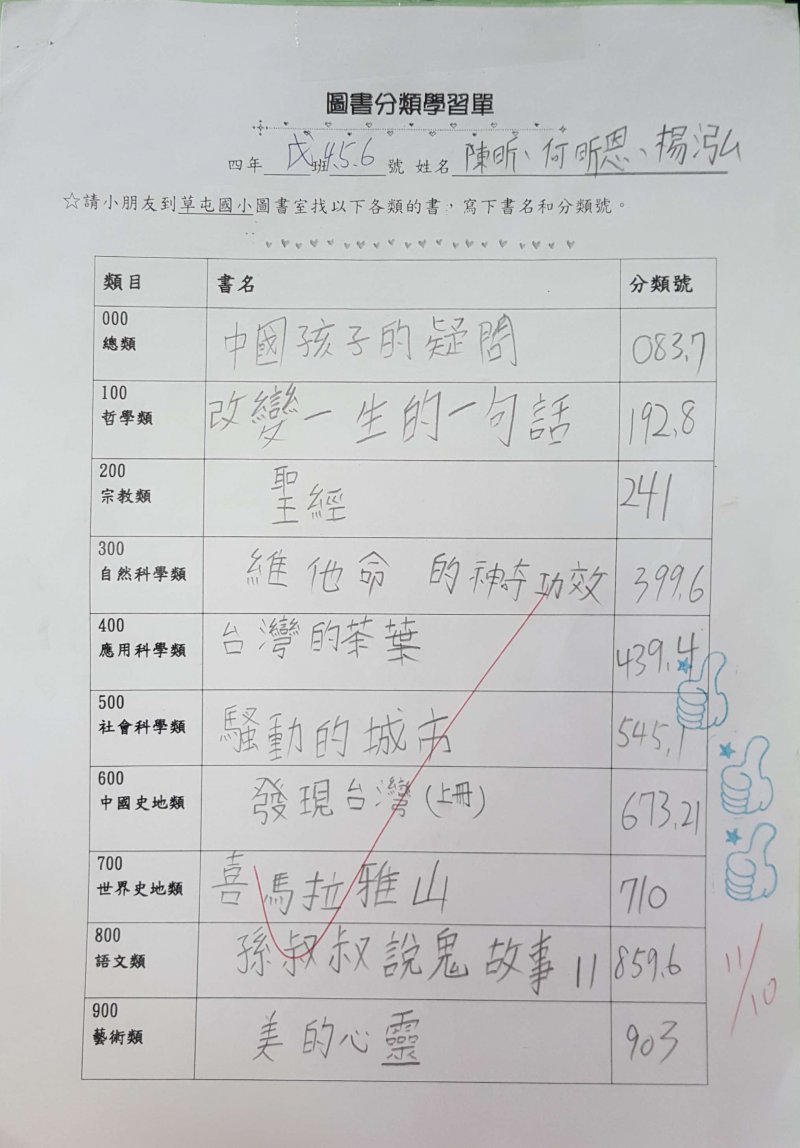 圖書分類學習單
四年 戊 班 4.5.6 號 姓名 陳昕、何昕恩、楊泓
☆請小朋友到草屯國小圖書室找以下各類的書，寫下書名和分類號。
類目 書名 分類號
000
總類 中國孩子的疑問 083.7
100
哲學類 改變一生的一句話 192.8
200
宗教類 聖經 241
300
自然科學類 維他命 的神奇功效 399.6
400
應用科學類 台灣的茶葉 439.4
500
社會科學類 騷動的城市 545.1
600
中國史地類 發現台灣(上冊) 673.21
700
世界史地類 喜馬拉雅山 710
800
語文類 孫叔叔說鬼故事 11 859.6
900
藝術類 美的心靈 903
11/10